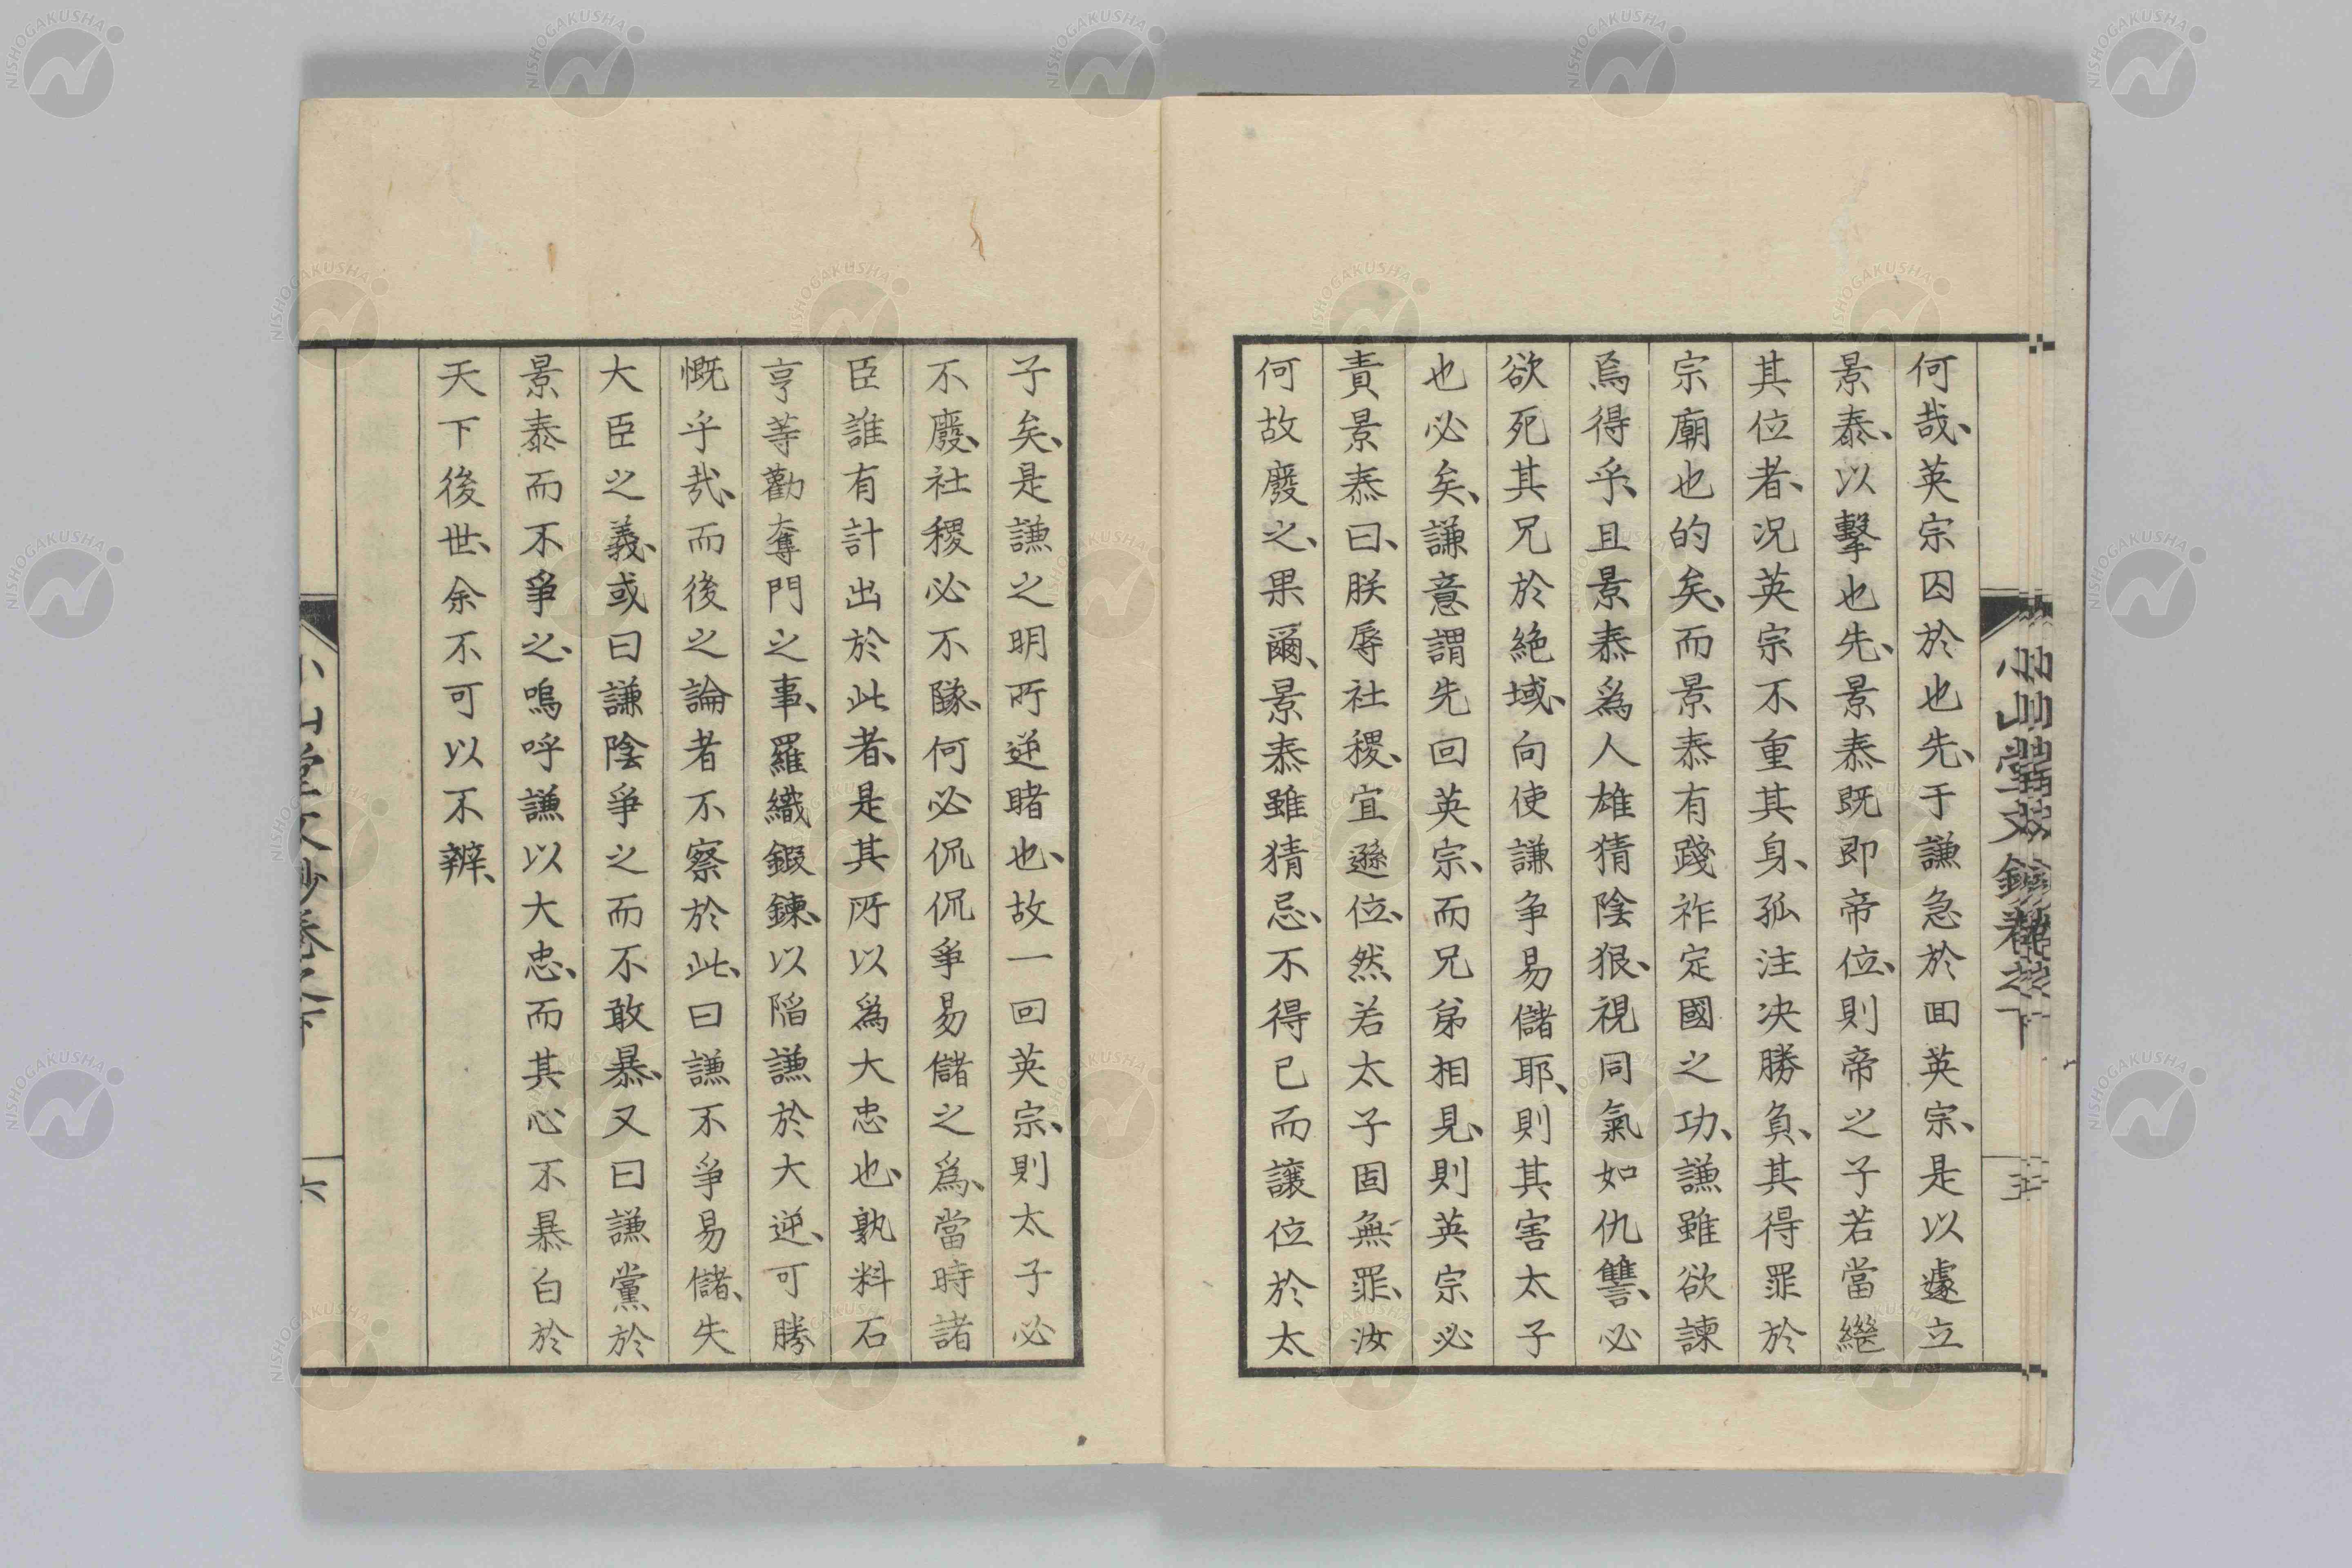 何哉、英宗囚於也先、于謙急於回英宗、是以遽立
景泰、以擊也先、景泰既即帝位、則帝之子若當繼
其位者、况英宗不重其身、孤注决勝負、其得罪於
宗廟也的矣、而景泰有踐祚定國之功、謙雖欲諫
焉得乎、且景泰爲人雄猜陰狠、視同氣如仇讐、必
欲死其兄於絶域、向使謙争易儲耶、則其害太子
也必矣、謙意謂先回英宗、而兄弟相見、則英宗必
責景泰曰、朕辱社稷、宜遜位、然若太子固無罪、汝
何故廢之、果爾、景泰雖猜忌、不得已而讓位於太
子矣、是謙之明所逆睹也、故一回英宗、則太子必
不廢、社稷必不隊、何必侃侃爭易儲之爲、當時諸
臣誰有計出於此者、是其所以爲大忠也、孰料石
亨等勸奪門之事、羅織鍜鍊、以陷謙於大逆、可勝
慨乎哉、而後之論者不察於此、曰謙不爭易儲、失
大臣之義、或曰謙陰爭之而不敢暴、又曰謙黨於
景泰而不爭之、嗚呼謙以大忠、而其心不暴白於
天下後世、余不可以不辨、
六
NISHOGAKUSHA